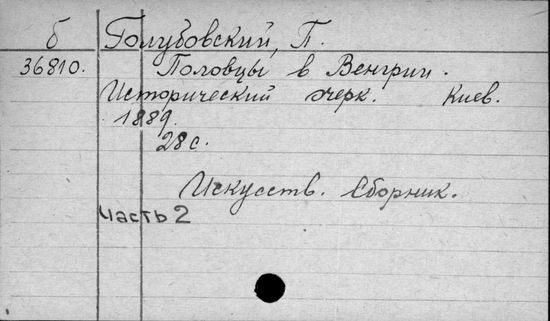 б Голубовский, П.
36810. Половцы в Венгрии.
Исторический очерк. Киев.
1889.
28 с.
Искусств. Сборник.
часть 2